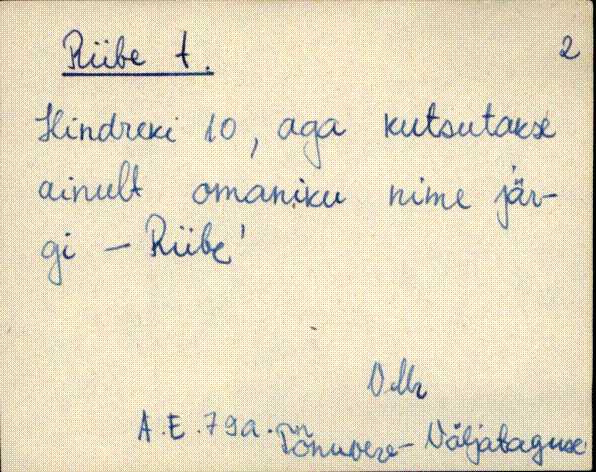 Riibe t. 2
Hindreki 10, aga kutsutakse
ainult omaniku nime jär-
gi – Riibe'
VMr
A.E. 79a. Tõnuvere – Väljataguse